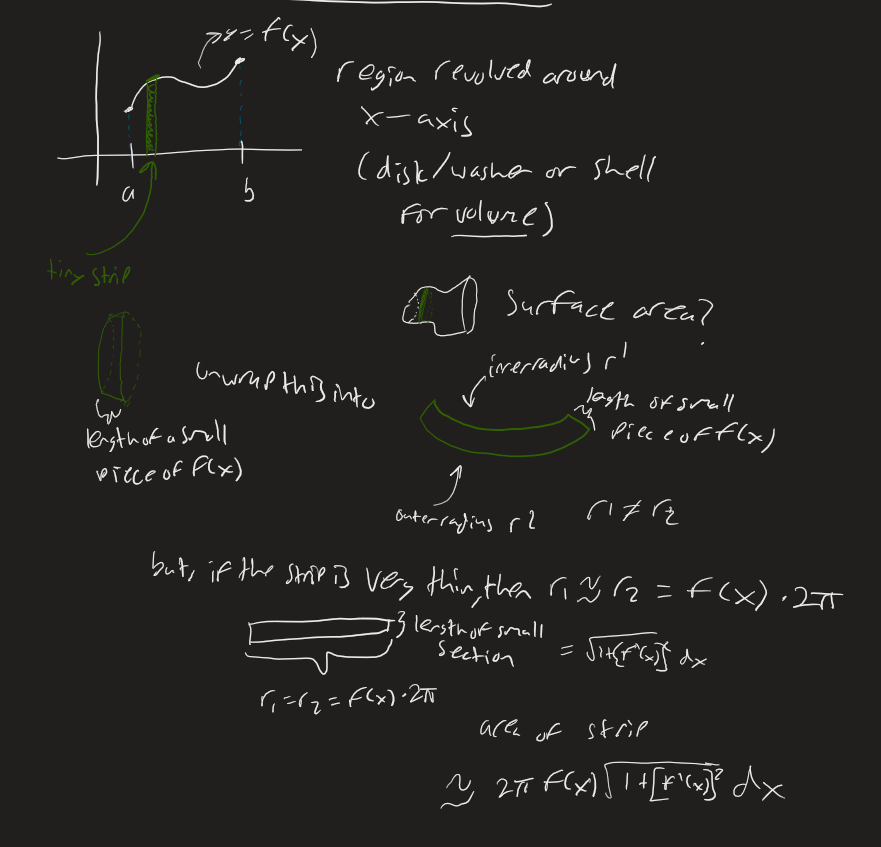 y = f(x)
region revolved around
x-axis
(disk/washer or shell
for volume)
a
b
tiny strip
Surface area?
inner radius r1
unwrap this into
length of small
piece of f(x)
length of a small
piece of f(x)
outer radius r2
r1 ≠ r2
but, if the strip is very thin, then r1 ≈ r2 = f(x) · 2π
length of small
section = √1+[f'(x)]² dx
r1 = r2 = f(x) · 2π
area of strip
≈ 2π f(x) √1+[f'(x)]² dx